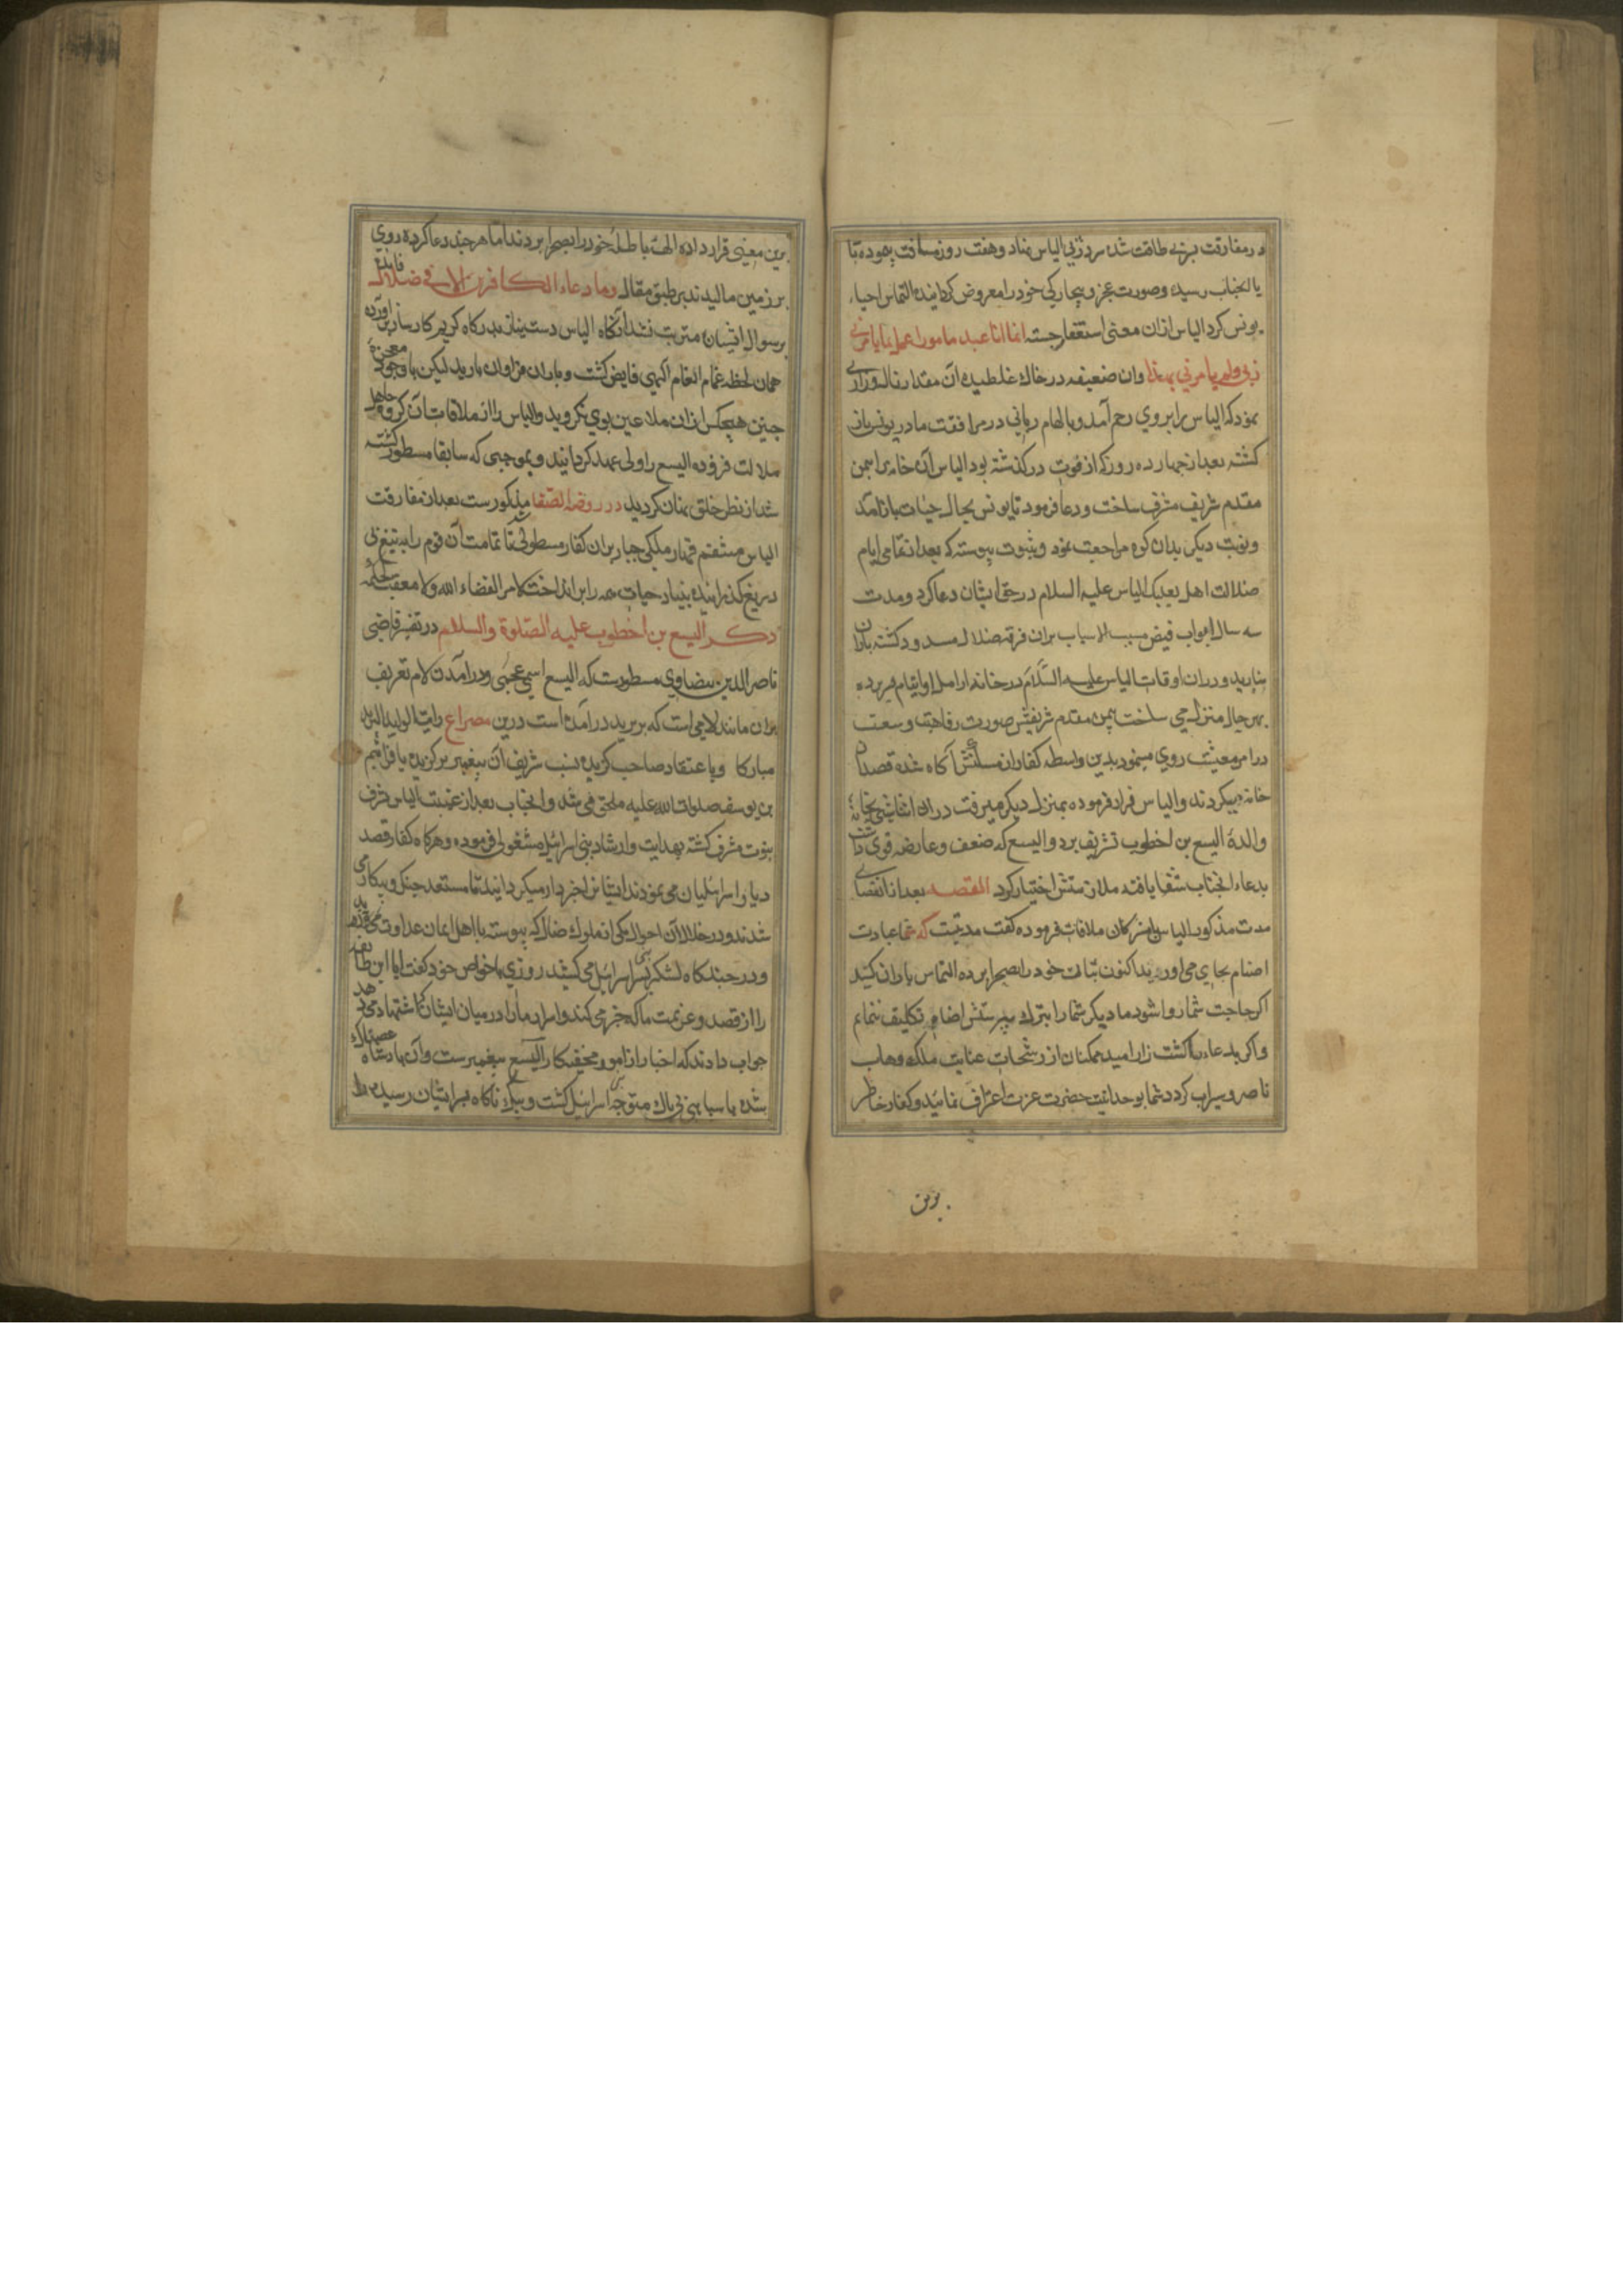 در مفارقت فرزند بی طاقت شده سر در پی الیاس نهاد و هفت روز مسافت پیموده تا
بآنجناب رسید و صورت عجز و بیچارکی خود را معروض کردانیده التماس احیاء
یونس کرد الیاس ازان معنی استغفار جسته انما انا عبد مامور اعمل بما یامرنی
ربی ولم یامرنی بهذا وان ضعیفه در خاک غلطیده آن مقدار ناله وزاری
نمود که الیاس را بروی رحم آمد و بالهام ربانی در مرافقت مادر یونس باز
کشته بعد از چهارده روز که از فوت در کذشته بود الیاس آن خانه را بیمن
مقدم شریف مشرف ساخت و دعا فرمود تا یونس بحال حیات باز آمد
ونوبت دیکر بدان کوه مراجعت نمود وبثبوت پیوسته که بعد از تمامی ایام
ضلالت اهل بعلبک الیاس علیه السلام در حق ایشان دعا کرد و مدت
سه سال ابواب فیض مسبب الاسباب بران فرقه ضلال مسدود کشته باران
نبارید و دران اوقات الیاس علیه السلام در خانه ارامل و ایتام بسر برده
بهر حال منزل می ساخت بیمن مقدم شریفش صورت رفاهیت و وسعت
در امر معیشت روی مینمود بدین واسطه کفار از مسکنش آکاه شده قصد آن
خانه میکردند والیاس فرار فرموده بمنزل دیکر میرفت در ان اثنا شبی بخانه
والدهٔ الیسع بن اخطوب تشریف برد و الیسع که ضعف و عارضه قوی داشت
بدعاء آنجناب شفا یافته ملازمتش اختیار کرد القصه بعد از انقضای
مدت مذکور الیاس با مشرکان ملاقات فرموده کفت مدتیست که شما عبادت
اصنام بجای می اورید اکنون بتان خود را بصحرا برده التماس باران کنید
اکر حاجت شما روا شود ما دیکر شما را بترک پرستش اصنام تکلیف ننمایم
واکر بدعاء ما کشت زار امید ممکنان از رشحات عنایت ملک وهاب
ناصر و سیراب کردد شما بوحدانیت حضرت عزت اعتراف نمائید و کفار خاطر
برین
برین معنی قرار داده الههٔ باطلهٔ خود را بصحرا بردند اما هر چند دعا کرده روی
بر زمین مالیدند بر طبق مقاله وما دعاء الکافرین الا فی ضلال فایدهٔ
بر سوال ایشان مترتب نشد آنکاه الیاس دست نیاز بدرکاه کریم کارساز بر آورده
همان لحظه غمام انعام الهی فایض کشت و باران فراوان بارید لیکن با وجود معجزهٔ
چنین هیچکس ازان ملاعین بوی نکروید والیاس را از ملاقات آن کروه جاهل
ملالت فزوده الیسع را ولی عهد کردانید و بموجبی که سابقا مسطور کشته
شد از نظر خلق نهان کردید در روضة الصفا مذکورست بعد از مفارقت
الیاس منتقم قهار ملکی جبار بران کفار مسطولی تا تمامت آن قوم را به تیغ بی
دریغ کذرانیده بنیاد حیات همه را بر انداخت لا مرد لقضاء الله ولا معقب لحکمه
ذکر الیسع بن اخطوب علیه الصلوة والسلام در تفسیر قاضی
ناصر الدین بیضاوی مسطورست که الیسع اسمی عجمی و درآمدن لام تعریف
بران مانند لامی است که بر یزید درآمده است درین مصراع رایت الولید بن الیزید
مبارکا وباعتقاد صاحب کزیده نسب شریف آن پیغمبر برکزیده بافرائیم
بن یوسف صلوات الله علیه ملحق می شد و آنجناب بعد از غیبت الیاس بشرف
نبوت مشرف کشته بهدایت وارشاد بنی اسرائیل مشغولی فرموده وهرکاه کفار قصد
دیار اسرائیلیان می نمودند ایشان را خبردار میکردانید تا مستعد جنک و پیکار می
شدند ودر خلال آن احوال یکی از ملوک ضال که پیوسته با اهل ایمان عداوت می ورزید
ودر جنکاه لشکر بر سر بنی اسرائیل می کشید روزی با خواص خود کفت ایا این طایفه
را از قصد و عزیمت ما که خبر می کند و اسرار ما را در میان ایشان که اشتهار می دهد
جواب دادند که اخبار از امور مخفیه کار الیسع پیغمبرست وآن پادشاه غضبناک
شده با سپاهی بی باک متوجه بنی اسرائیل کشت و بیک ناکاه بر ایشان رسیده